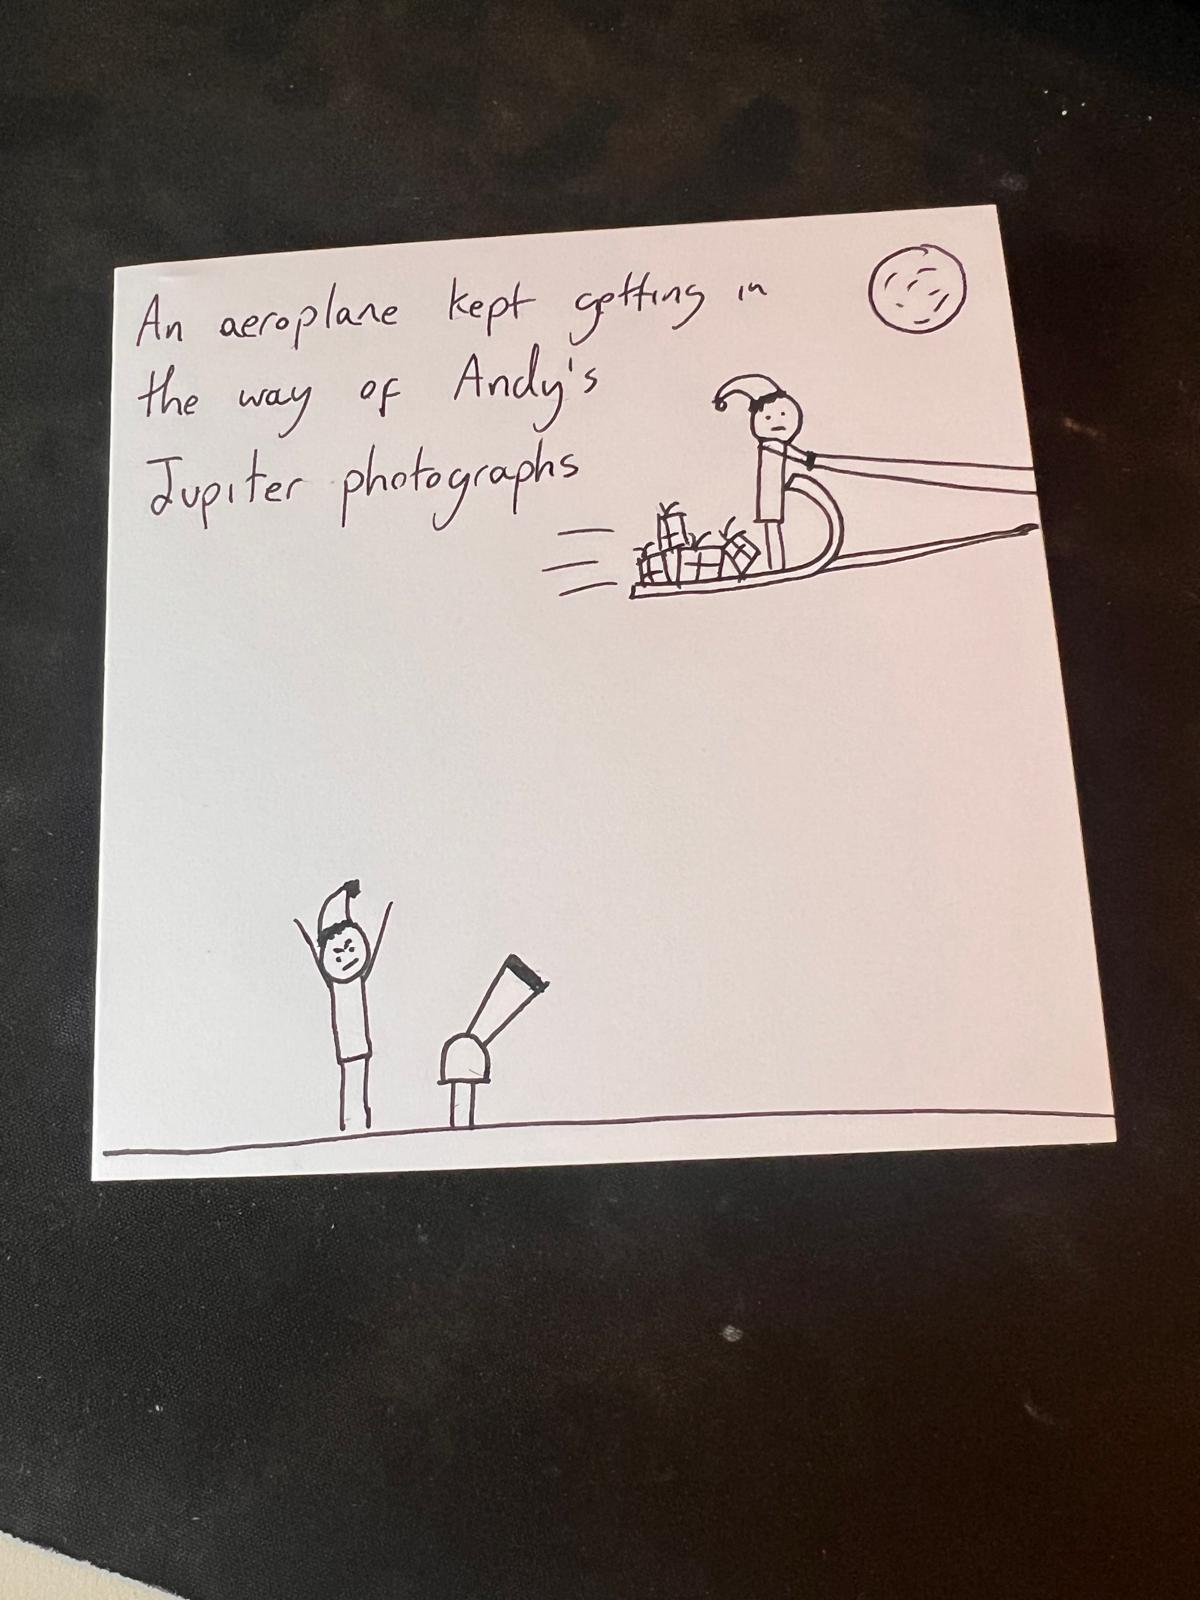 An aeroplane kept getting in
the way of Andy's
Jupiter photographs